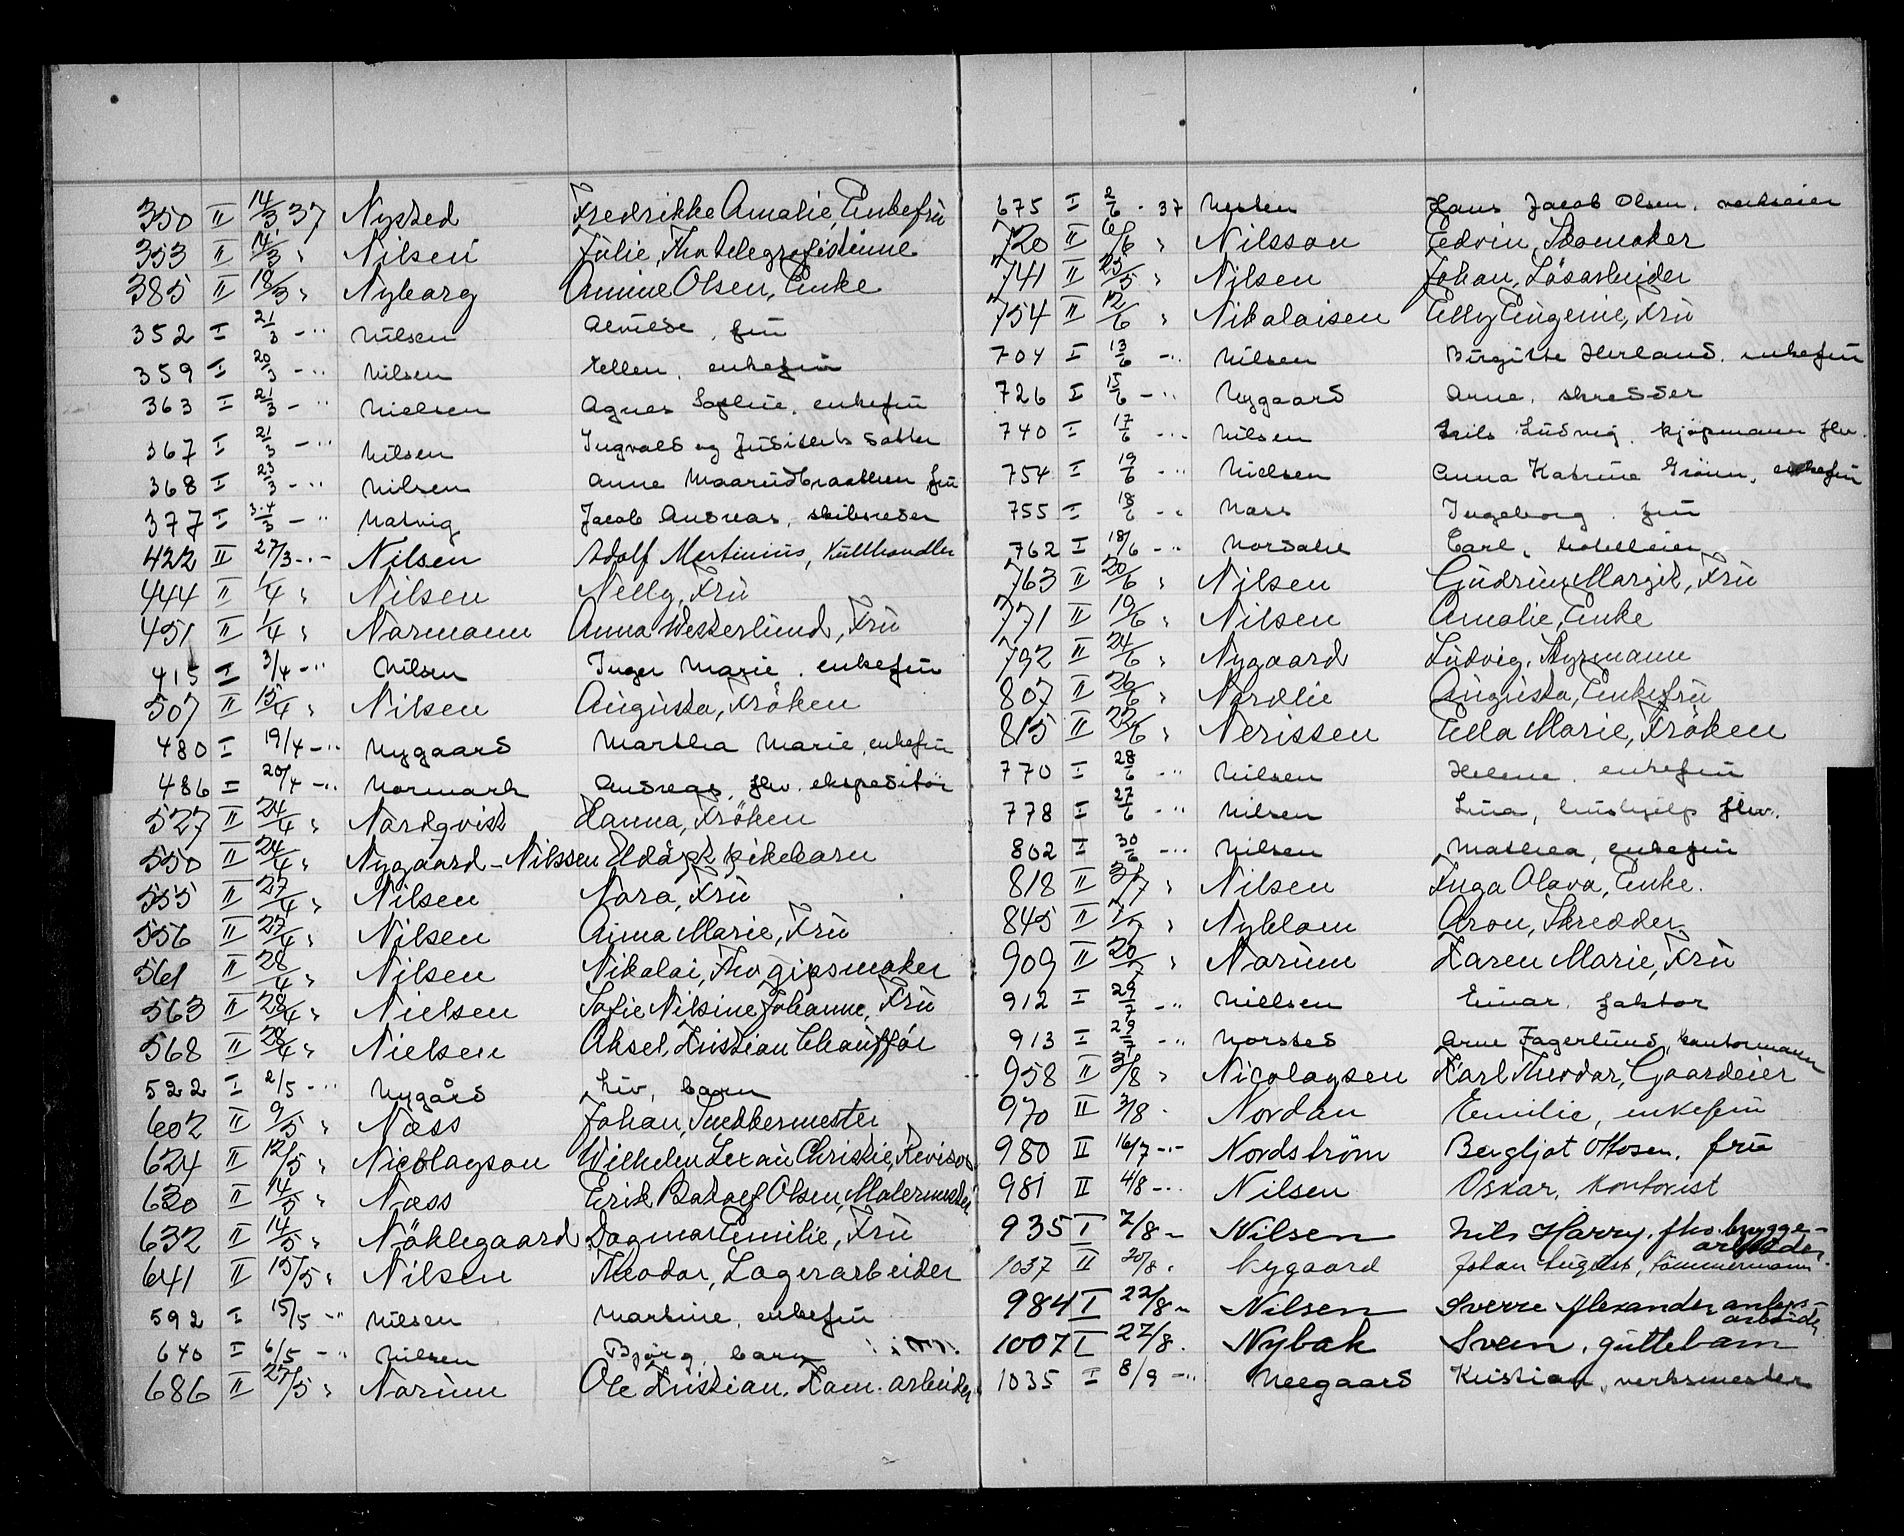 350 II 14/3 37 Nysted Fredrikke Amalie, Enkefru
353 II 14/3 " Nilsen Julie, Fhv telegrafistinne
385 II 18/3 " Nyborg Amine Olsen, Enke
352 I 21/3 - " Nilsen fru
359 I 20/3 - " Nilsen Ellen, enkefru
363 I 21/3 - " Nielsen Agnes Sophie, enkefru
367 I 21/3 - " Nilsen Ingvald og Judiths datter
368 I 23/3 - " Nilsen Anne Maarudbraathen fru
377 I 24/3 - " Natvig Jacob Andreas, skibsreder
422 II 27/3 - " - Nilsen Adolf Martinius, Kullhandler
444 II 1/4 " Nilsen Nelly, Fru
451 II 1/4 " Normann Anna Westerlund, Fru
415 I 3/4 - " Nilsen Inger Marie, enkefru
507 II 15/4 " Nilsen Augusta, Fröken
480 I 19/4 - " Nygaard Martha Marie, enkefru
486 I 20/4 - " Normark Andreas, fhv. ekspeditör
527 II 24/4 " Nordqvist Hanna, Fröken
550 II 24/4 " Nygaard-Nilssen pikebarn
555 II 27/4 " Nilsen Nora, Fru
556 II 27/4 " Nilsen Anna Marie, Fru
561 II 28/4 " Nilsen Nikolai, Fhv gipsmaker
563 II 28/4 " Nielsen Sofie Nilsine Johanne, Fru
568 II 28/4 " Nielsen Aksel Kristian Chaufför
522 I 2/5 - " Nygård Liv, barn
602 II 9/5 " Næss Johan, Snekkermester
624 II 12/5 " Nicolayson Wilhelm Lexau Christie, Revisor
630 II 14/5 " Næss Erik Badolf Olsen, Malermester
632 II 14/5 " Nöklegaard Dagmar Emilie, Fru
641 II 15/5 " Nilsen Theodor, Lagerarbeider
592 I 15/5 - " Nilsen Martine, enkefru
640 I 6/5 - " Nilsen Bjørg, barn
686 II 27/5 " Norum Ole Kristian, Kom. arbeider
675 I 2/6 - 37 Nesten Hans Jacob Olsen, verkseier
720 II 6/6 " Nilsson Edvin, Skomaker
741 II 25/5 " Nilsen Johan, Lösarbeider
754 II 12/6 " Nikolaisen Elly Eugenie, Fru
704 I 13/6 - " Nilsen Birgitte Herland, enkefru
726 I 15/6 - " Nygaard Arne, skredder
740 I 17/6 - " Nilsen Nils Ludvig, kjøpmann fhv.
754 I 19/6 - " Nielsen Anna Katrine Grönn, enkefru
755 I 18/6 - " Nars Ingeborg, fru
762 I 18/6 - " Nordahl Carl, hotelleier
763 II 20/6 " Nilsen Gudrun Margit, Fru
771 II 19/6 " Nilsen Amalie, Enke
792 II 24/6 " Nygaard Ludvig, Styrmann
807 II 26/6 " Nordlie Augusta, Enkefru
815 II 22/6 " Nerissen Ella Marie, Fröken
770 I 28/6 - " Nilsen Helene, enkefru
778 I 27/6 - " Nilsen Lina, hushjelp fhv.
802 I 30/6 - " Nilsen Mathea, enkefru
818 II 3/7 " Nilsen Inga Olava, Enke.
845 II 7/7 " Nyblom Aron, Skredder
909 II 20/7 " Norum Karen Marie, Fru
912 I 29/7 - " Nielsen Einar, faktor
913 I 29/7 - " Norsted Arne Fagerlund, kontormann
958 II 3/8 " Nicolaysen Karl Theodor, Gaardeier
970 II 3/8 " Nordan Emilie, enkefru
980 II 16/7 - " Nordstrøm Bergljot Ottosen, fru
981 II 4/8 - " Nilsen Oskar, kontorist
935 I 7/8 " Nilsen Nils Harry, fhv. brygge-
arbeider
1037 II 20/8 " Nygaard Johan August, tömmermann
984 I 22/8 " Nilsen Sverre Alexander, anlegs-
arbeider
1007 I 27/8 " Nybak Svein, guttebarn
1035 I 8/9 - " Neegaard Kristian, verksmester